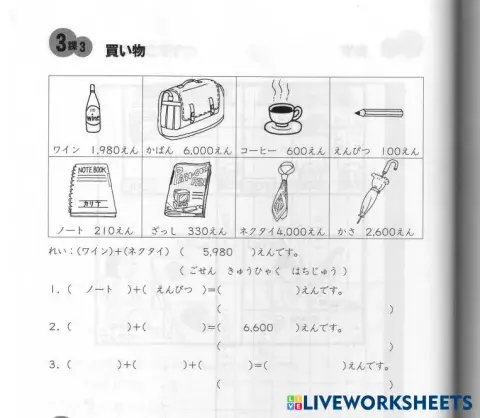 3課3 買い物
wine
NOTE BOOK
カリナ
ワイン 1,980えん かばん 6,000えん コーヒー 600えん えんぴつ 100えん
ノート 210えん ざっし 330えん ネクタイ4,000えん かさ 2,600えん
れい:(ワイン)+(ネクタイ) ( 5,980 )えんです。
( ごせん きゅうひゃく はちじゅう )
1.( ノート )+( えんぴつ )=( )えんです。
( )
2.( )+( )=( 6,600 )えんです。
( )
3.( )+( )+( )=( )えんです。
( )
LIVEWORKSHEETS